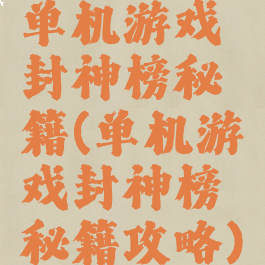 单机游戏
封神榜秘
籍(单机游
戏封神榜
秘籍攻略)